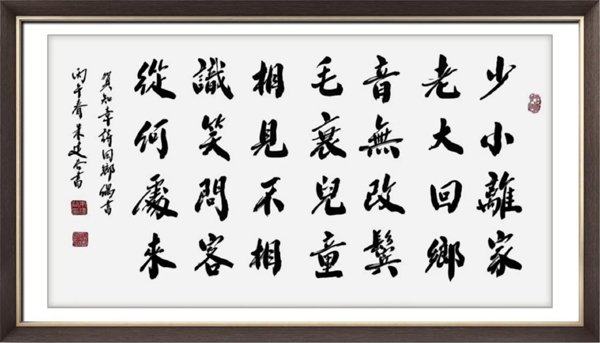 少小離家
老大回鄉
音無改鬢
毛衰兒童
相見不相
識笑問客
從何處來
賀知章詩回鄉偶書
丙午春